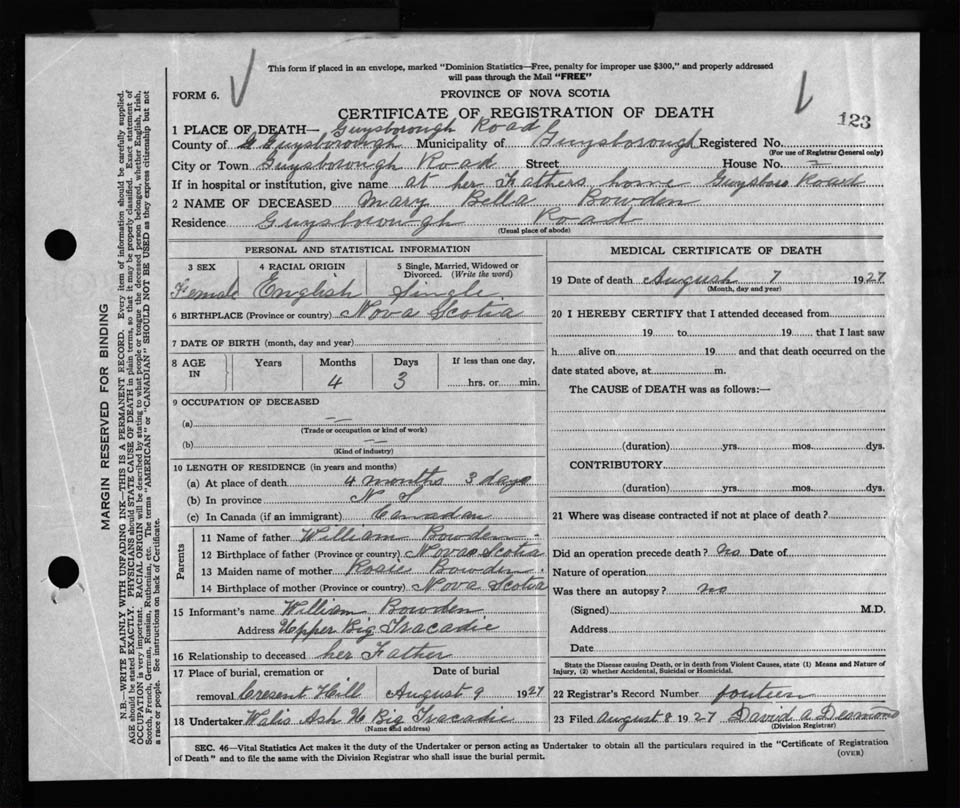 This form if placed in an envelope, marked "Dominion Statistics—Free, penalty for improper use $300," and properly addressed
will pass through the Mail "FREE"
FORM 6.
PROVINCE OF NOVA SCOTIA
CERTIFICATE OF REGISTRATION OF DEATH
123
1 PLACE OF DEATH— Guysborough Road
County of Guysborough Municipality of Guysborough Registered No.
(For use of Registrar General only)
City or Town Guysborough Road Street House No.
If in hospital or institution, give name at her Fathers home Guysboro Road
2 NAME OF DECEASED Mary Bella Bowden
Residence Guysborough Road
(Usual place of abode)
PERSONAL AND STATISTICAL INFORMATION
3 SEX 4 RACIAL ORIGIN 5 Single, Married, Widowed or
Divorced. (Write the word)
Female English Single
6 BIRTHPLACE (Province or country) Nova Scotia
7 DATE OF BIRTH (month, day and year)
8 AGE IN Years Months Days If less than one day,
4 3 hrs. or min.
9 OCCUPATION OF DECEASED
(a)
(Trade or occupation or kind of work)
(b)
(Kind of industry)
10 LENGTH OF RESIDENCE (in years and months)
(a) At place of death 4 months 3 days
(b) In province N S
(c) In Canada (if an immigrant) Canadan
Parents
11 Name of father William Bowden
12 Birthplace of father (Province or country) Nova Scotia
13 Maiden name of mother Rosie Bowden
14 Birthplace of mother (Province or country) Nova Scotia
15 Informant's name William Bowden
Address Upper Big Tracadie
16 Relationship to deceased her Father
17 Place of burial, cremation or Date of burial
removal Cresent Hill August 9 1927
18 Undertaker Walis Ash U Big Tracadie
(Name and address)
MEDICAL CERTIFICATE OF DEATH
19 Date of death August 7 1927
(Month, day and year)
20 I HEREBY CERTIFY that I attended deceased from
19 to 19 that I last saw
h alive on 19 and that death occurred on the
date stated above, at m.
The CAUSE of DEATH was as follows:—
(duration) yrs. mos. dys.
CONTRIBUTORY
(duration) yrs. mos. dys.
21 Where was disease contracted if not at place of death?
Did an operation precede death? No Date of
Nature of operation
Was there an autopsy? no
(Signed) M.D.
Address
Date
State the Disease causing Death, or in death from Violent Causes, state (1) Means and Nature of
Injury, (2) whether Accidental, Suicidal or Homicidal.
22 Registrar's Record Number fourtien
23 Filed August 8 1927 David A Desmond
(Division Registrar)
SEC. 46—Vital Statistics Act makes it the duty of the Undertaker or person acting as Undertaker to obtain all the particulars required in the "Certificate of Registration
of Death" and to file the same with the Division Registrar who shall issue the burial permit.
(OVER)
MARGIN RESERVED FOR BINDING
N.B.—WRITE PLAINLY WITH UNFADING INK—THIS IS A PERMANENT RECORD. Every item of information should be carefully supplied.
AGE should be stated EXACTLY. PHYSICIANS should STATE CAUSE OF DEATH in plain terms, so that it may be properly classified. Exact statement of
OCCUPATION is very important. RACIAL ORIGIN will be described by stating to what people or tongue the deceased person belonged, whether English, Irish,
Scotch, French, German, Russian, Ruthenian, etc. The terms "AMERICAN" or "CANADIAN" SHOULD NOT BE USED as they express citizenship but not
a race or people. See instructions on back of Certificate.